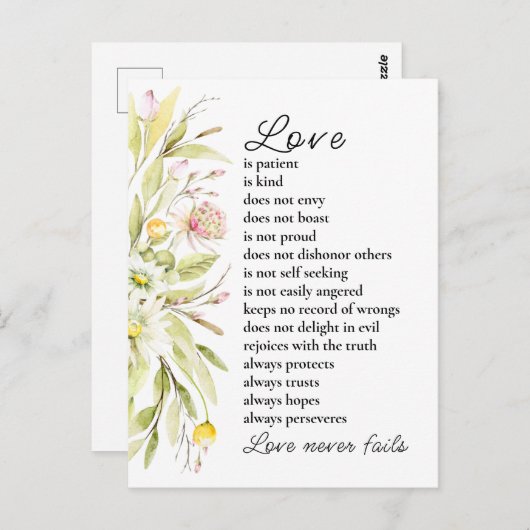 Love
is patient
is kind
does not envy
does not boast
is not proud
does not dishonor others
is not self seeking
is not easily angered
keeps no record of wrongs
does not delight in evil
rejoices with the truth
always protects
always trusts
always hopes
always perseveres
Love never fails
zzle